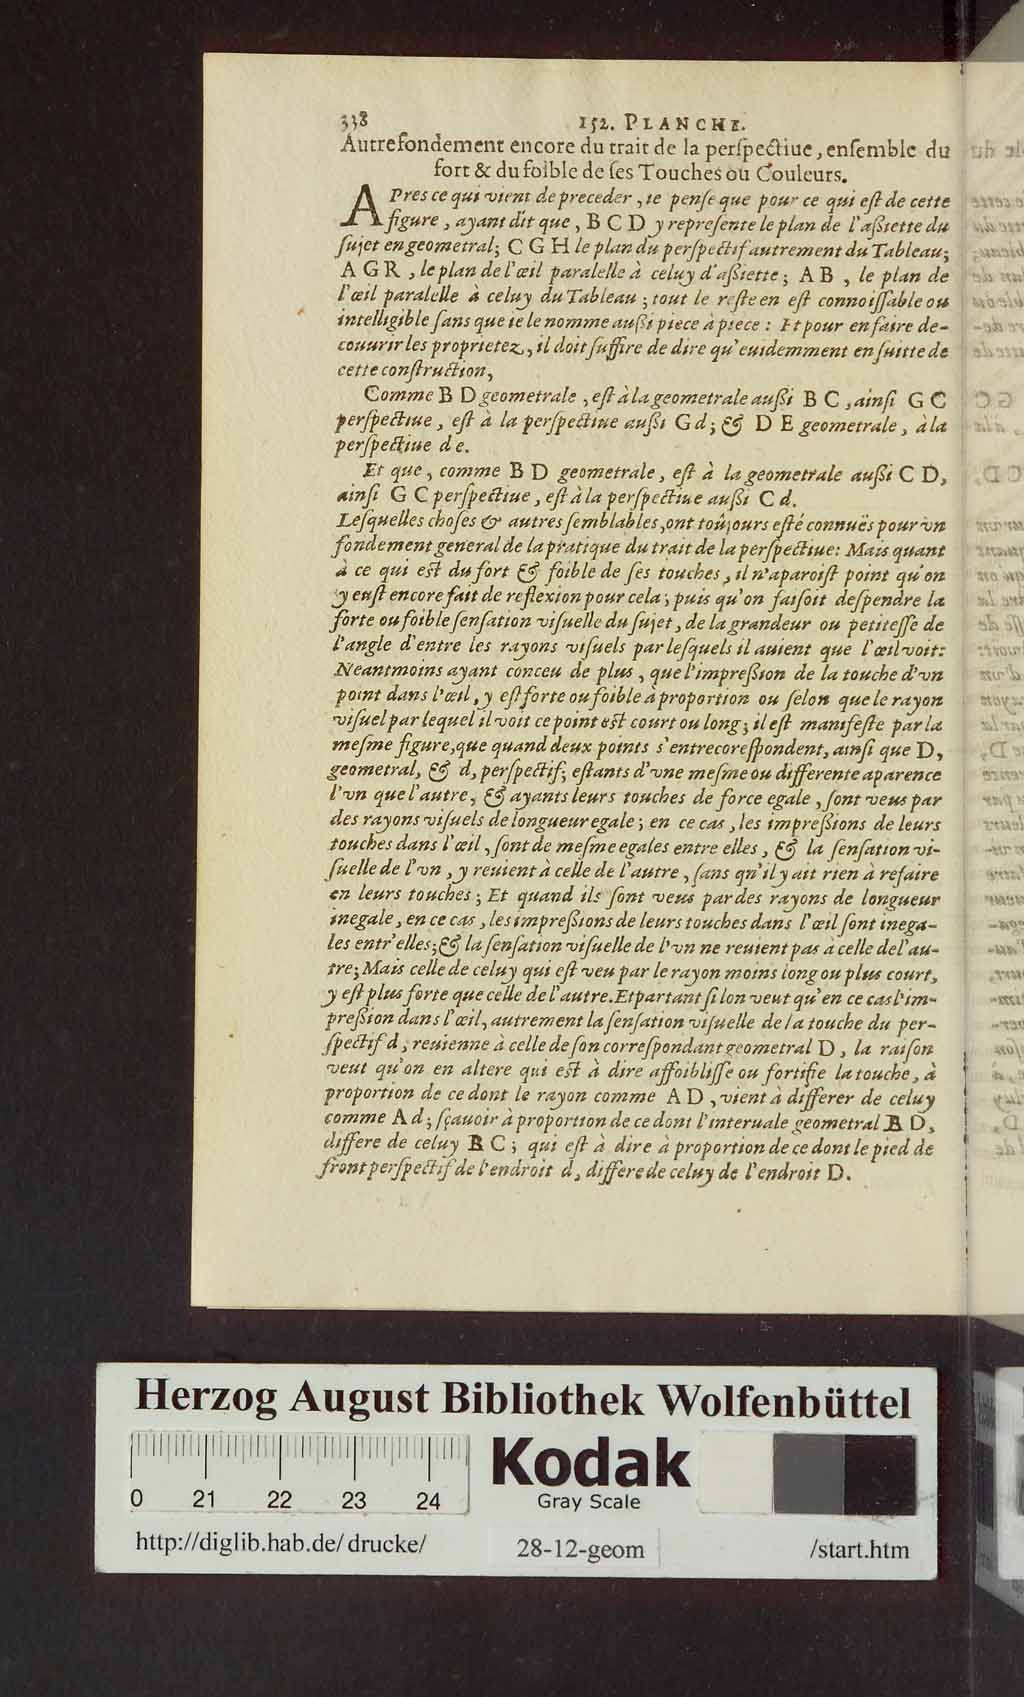 338
152. PLANCHE.
Autre fondement encore du trait de la perſpectiue, enſemble du
fort & du foible de ſes Touches ou Couleurs.
APres ce qui vient de preceder, ie penſe que pour ce qui eſt de cette
figure, ayant dit que, B C D y repreſente le plan de l'aßiette du
ſujet en geometral; C G H le plan du perſpectif autrement du Tableau;
A G R, le plan de l'œil paralelle à celuy d'aßiette; A B, le plan de
l'œil paralelle à celuy du Tableau; tout le reſte en eſt connoiſſable ou
intelligible ſans que ie le nomme außi piece à piece: Et pour en faire de-
couurir les proprietez, il doit ſuffire de dire qu'euidemment en ſuitte de
cette conſtruction,
Comme B D geometrale, eſt à la geometrale außi B C, ainſi G C
perſpectiue, eſt à la perſpectiue außi G d; & D E geometrale, à la
perſpectiue d e.
Et que, comme B D geometrale, eſt à la geometrale außi C D,
ainſi G C perſpectiue, eſt à la perſpectiue außi C d.
Leſquelles choſes & autres ſemblables, ont toûjours eſté connuës pour vn
fondement general de la pratique du trait de la perſpectiue: Mais quant
à ce qui eſt du fort & foible de ſes touches, il n'aparoiſt point qu'on
y euſt encore fait de reflexion pour cela; puis qu'on faiſoit deſpendre la
forte ou foible ſenſation viſuelle du ſujet, de la grandeur ou petiteſſe de
l'angle d'entre les rayons viſuels par leſquels il auient que l'œil voit:
Neantmoins ayant conceu de plus, que l'impreßion de la touche d'vn
point dans l'œil, y eſt forte ou foible à proportion ou ſelon que le rayon
viſuel par lequel il voit ce point eſt court ou long; il eſt manifeſte par la
meſme figure, que quand deux points s'entrecoreſpondent, ainſi que D,
geometral, & d, perſpectif; eſtants d'vne meſme ou differente aparence
l'vn que l'autre, & ayants leurs touches de force egale, ſont veus par
des rayons viſuels de longueur egale; en ce cas, les impreßions de leurs
touches dans l'œil, ſont de meſme egales entre elles, & la ſenſation vi-
ſuelle de l'vn, y reuient à celle de l'autre, ſans qu'il y ait rien à refaire
en leurs touches; Et quand ils ſont veus par des rayons de longueur
inegale, en ce cas, les impreßions de leurs touches dans l'œil ſont inega-
les entr'elles; & la ſenſation viſuelle de l'vn ne reuient pas à celle de l'au-
tre; Mais celle de celuy qui eſt veu par le rayon moins long ou plus court,
y eſt plus forte que celle de l'autre. Et partant ſi lon veut qu'en ce cas l'im-
preßion dans l'œil, autrement la ſenſation viſuelle de la touche du per-
ſpectif d, reuienne à celle de ſon correſpondant geometral D, la raiſon
veut qu'on en altere qui eſt à dire affoibliſſe ou fortifie la touche, à
proportion de ce dont le rayon comme A D, vient à differer de celuy
comme A d; ſçauoir à proportion de ce dont l'interuale geometral B D,
differe de celuy B C; qui eſt à dire à proportion de ce dont le pied de
front perſpectif de l'endroit d, differe de celuy de l'endroit D.
Herzog August Bibliothek Wolfenbüttel
0 21 22 23 24
Kodak
Gray Scale
http://diglib.hab.de/drucke/ 28-12-geom /start.htm